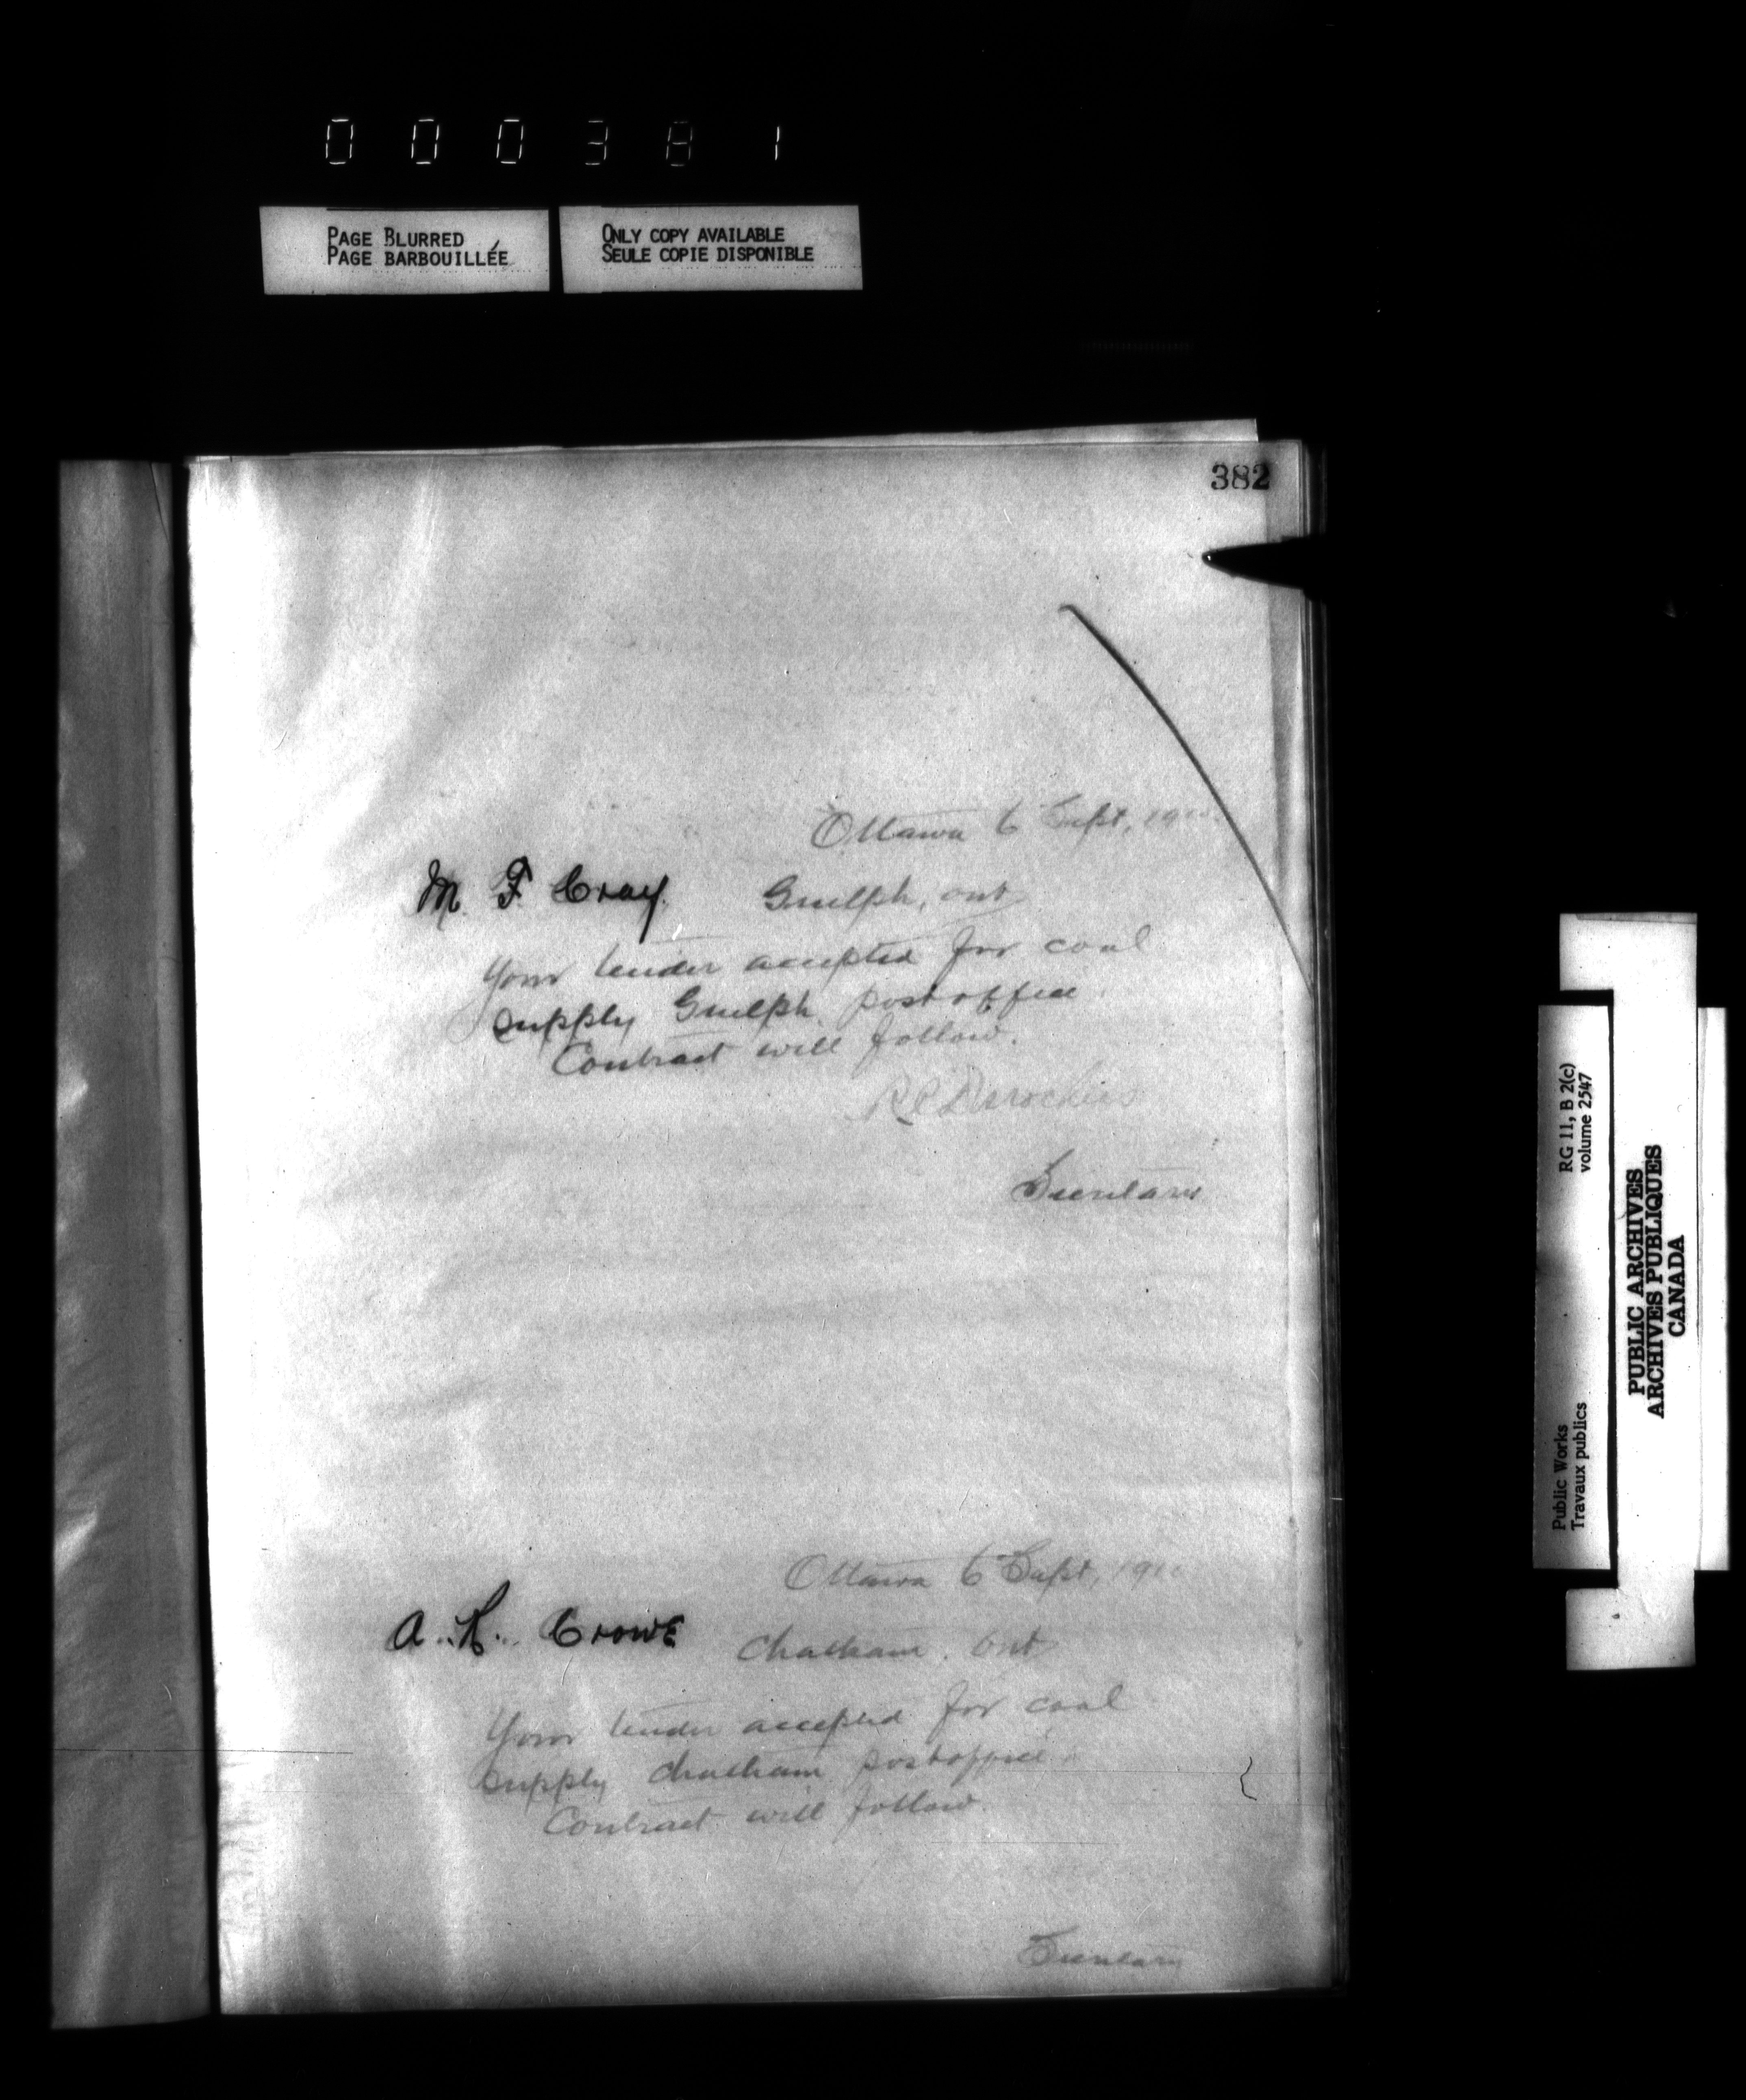 000381
PAGE BLURRED
PAGE BARBOUILLÉE
ONLY COPY AVAILABLE
SEULE COPIE DISPONIBLE
382
Ottawa 6 Sept, 191
M. F. Cray. Guelph, Ont
Your tender accepted for coal
supply Guelph post office.
Contract will follow.
Secretary
Ottawa 6 Sept, 191
A. H. Crowe Chatham. Ont
Your tender accepted for coal
supply Chatham postoffice.
Contract will follow.
Secretary
Public Works
Travaux publics
RG 11, B 2(c)
volume 2547
PUBLIC ARCHIVES
ARCHIVES PUBLIQUES
CANADA